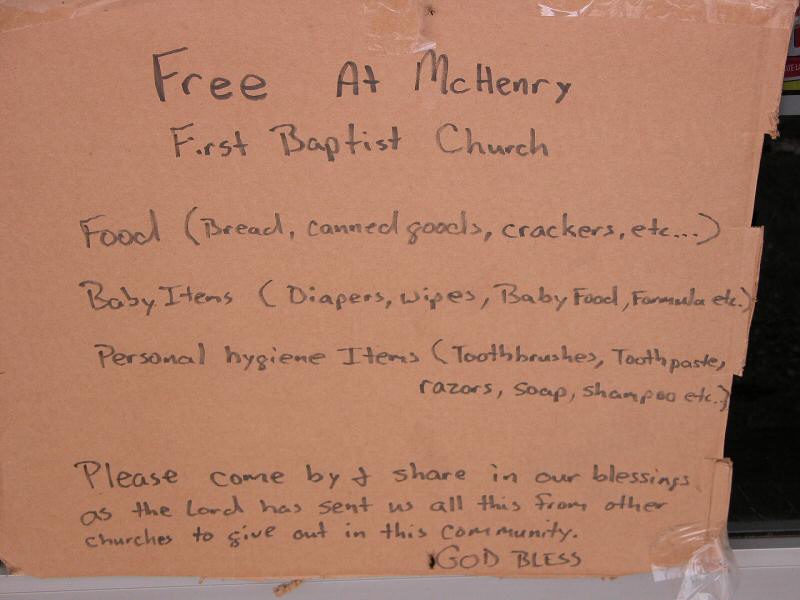 Free At McHenry
First Baptist Church
Food (Bread, canned goods, crackers, etc...)
Baby Items (Diapers, wipes, Baby Food, Formula etc.)
Personal hygiene Items (Toothbrushes, Toothpaste,
razors, soap, shampoo etc..)
Please come by & share in our blessings
as the Lord has sent us all this from other
churches to give out in this community.
GOD BLESS